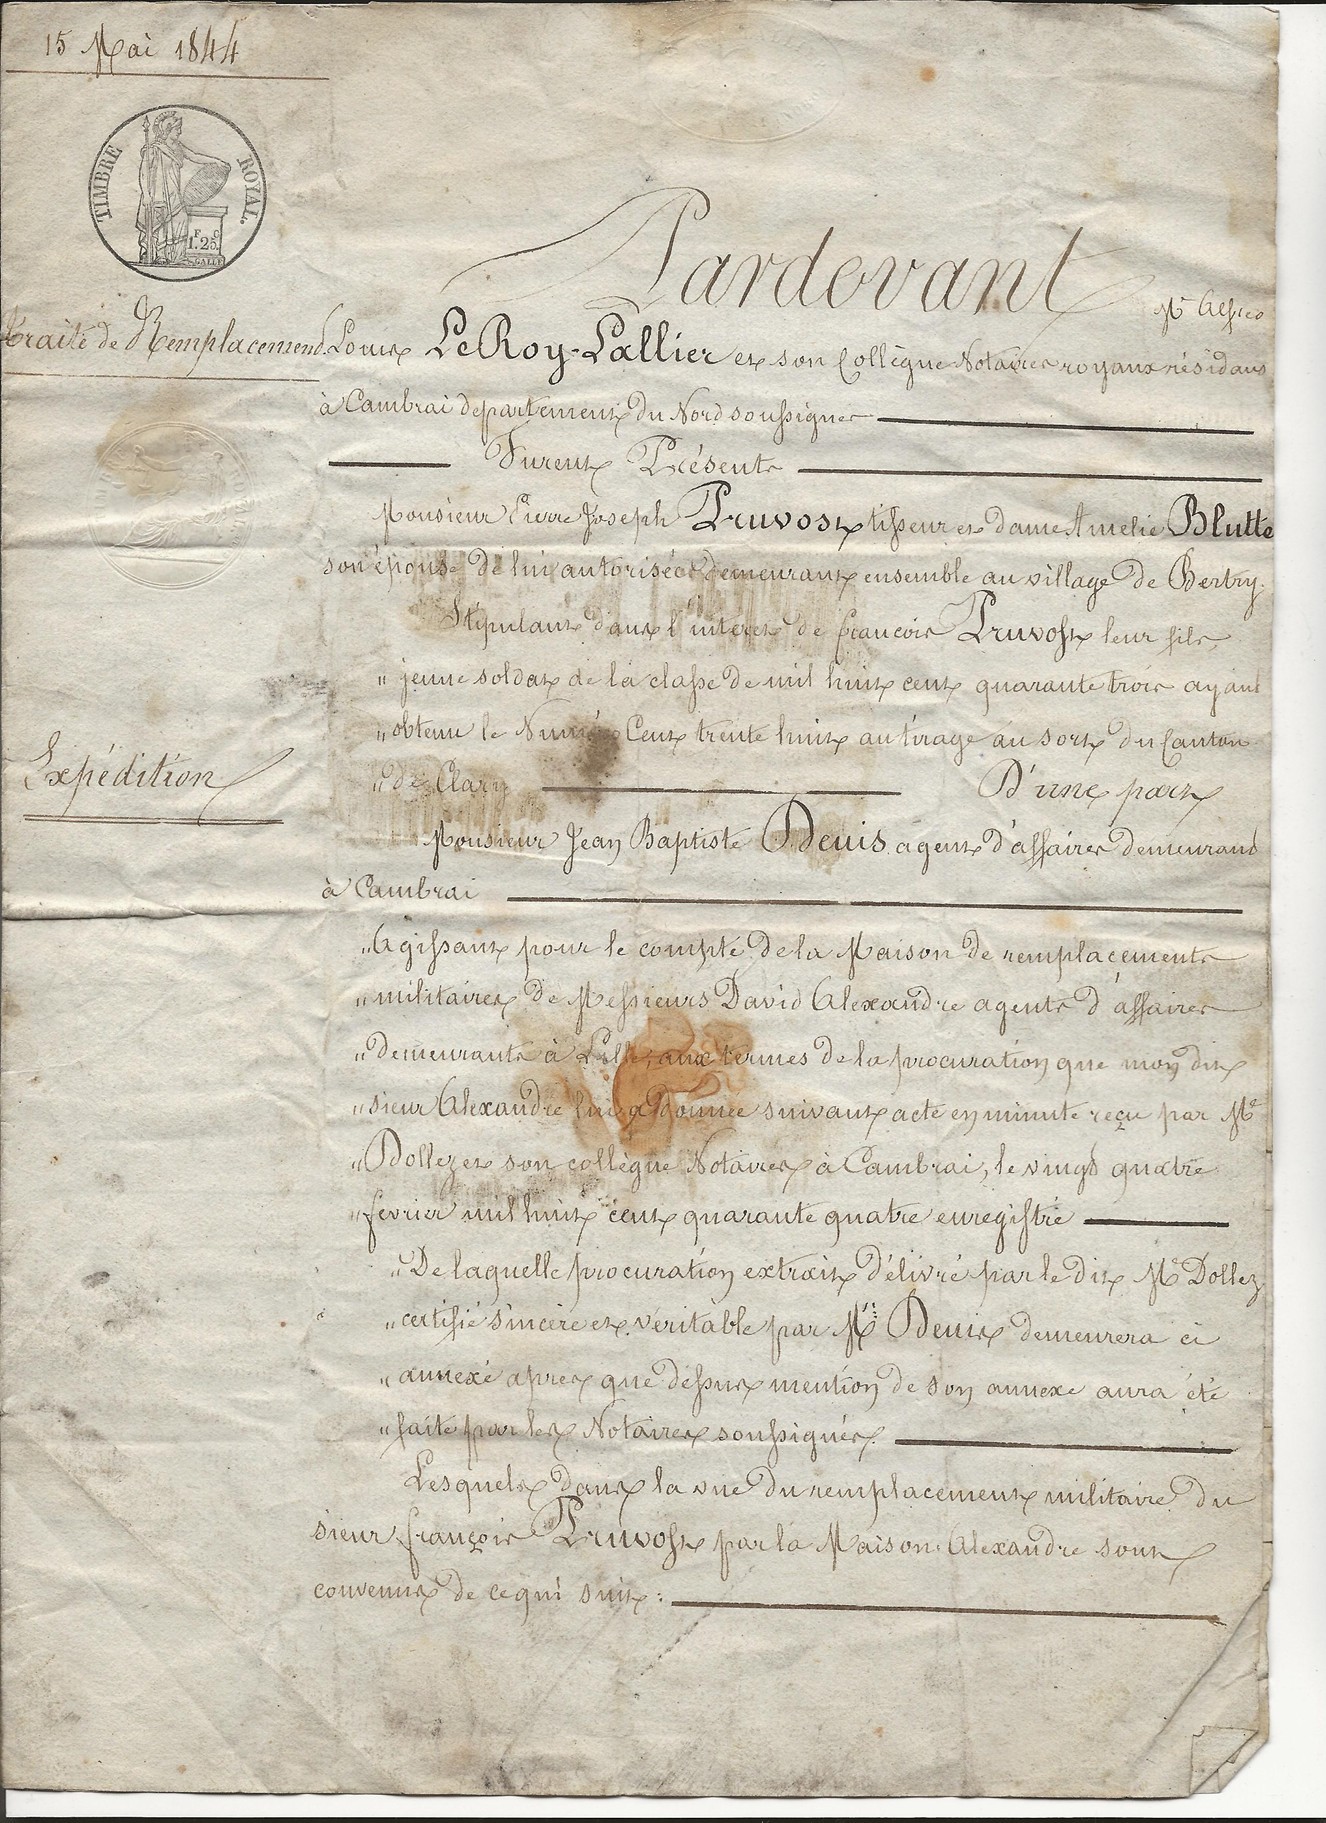 15 Mai 1844
TIMBRE ROYAL.
F C
1.25
Pardevant
Mᵉ
Traité de Remplacement
Louis LeRoy-Lallier et son Collègue Notaires royaux résidans
à Cambrai departement du Nord soussignés
Furent Présents
Monsieur Pierre Joseph Pruvost tisseur et dame Amelie Blutte
son épouse de lui autorisée demeurant ensemble au village de Bertry.
Stipulant dans l'intérêt de francois Pruvost leur fils,
" jeune soldat de la classe de mil huit cent quarante trois ayant
" obtenu le Numéro Cent trente huit au tirage au sort du Canton
Expédition
" de Clary D'une part
Monsieur Jean Baptiste Denis agent d'affaires demeurant
à Cambrai
" Agissant pour le compte de la Maison de remplacements
" militaires de Messieurs David Alexandre agents d'affaires
" demeurants à Lille, aux termes de la procuration que mon dit
" sieur Alexandre lui a donnée suivant acte en minute reçu par Mᵉ
" Dollez et son collègue Notaires à Cambrai, le vingt quatre
" février mil huit cent quarante quatre enregistré
" De laquelle procuration extrait délivré par le dit Mᵉ Dollez
" certifié sincère et véritable par Mʳ Denis demeurera ci
" annexé après que dessus mention de son annexe aura été
" faite par les Notaires soussignés.
Lesquels dans la vue du remplacement militaire du
sieur françois Pruvost par la Maison Alexandre sont
convenus de ce qui suit :